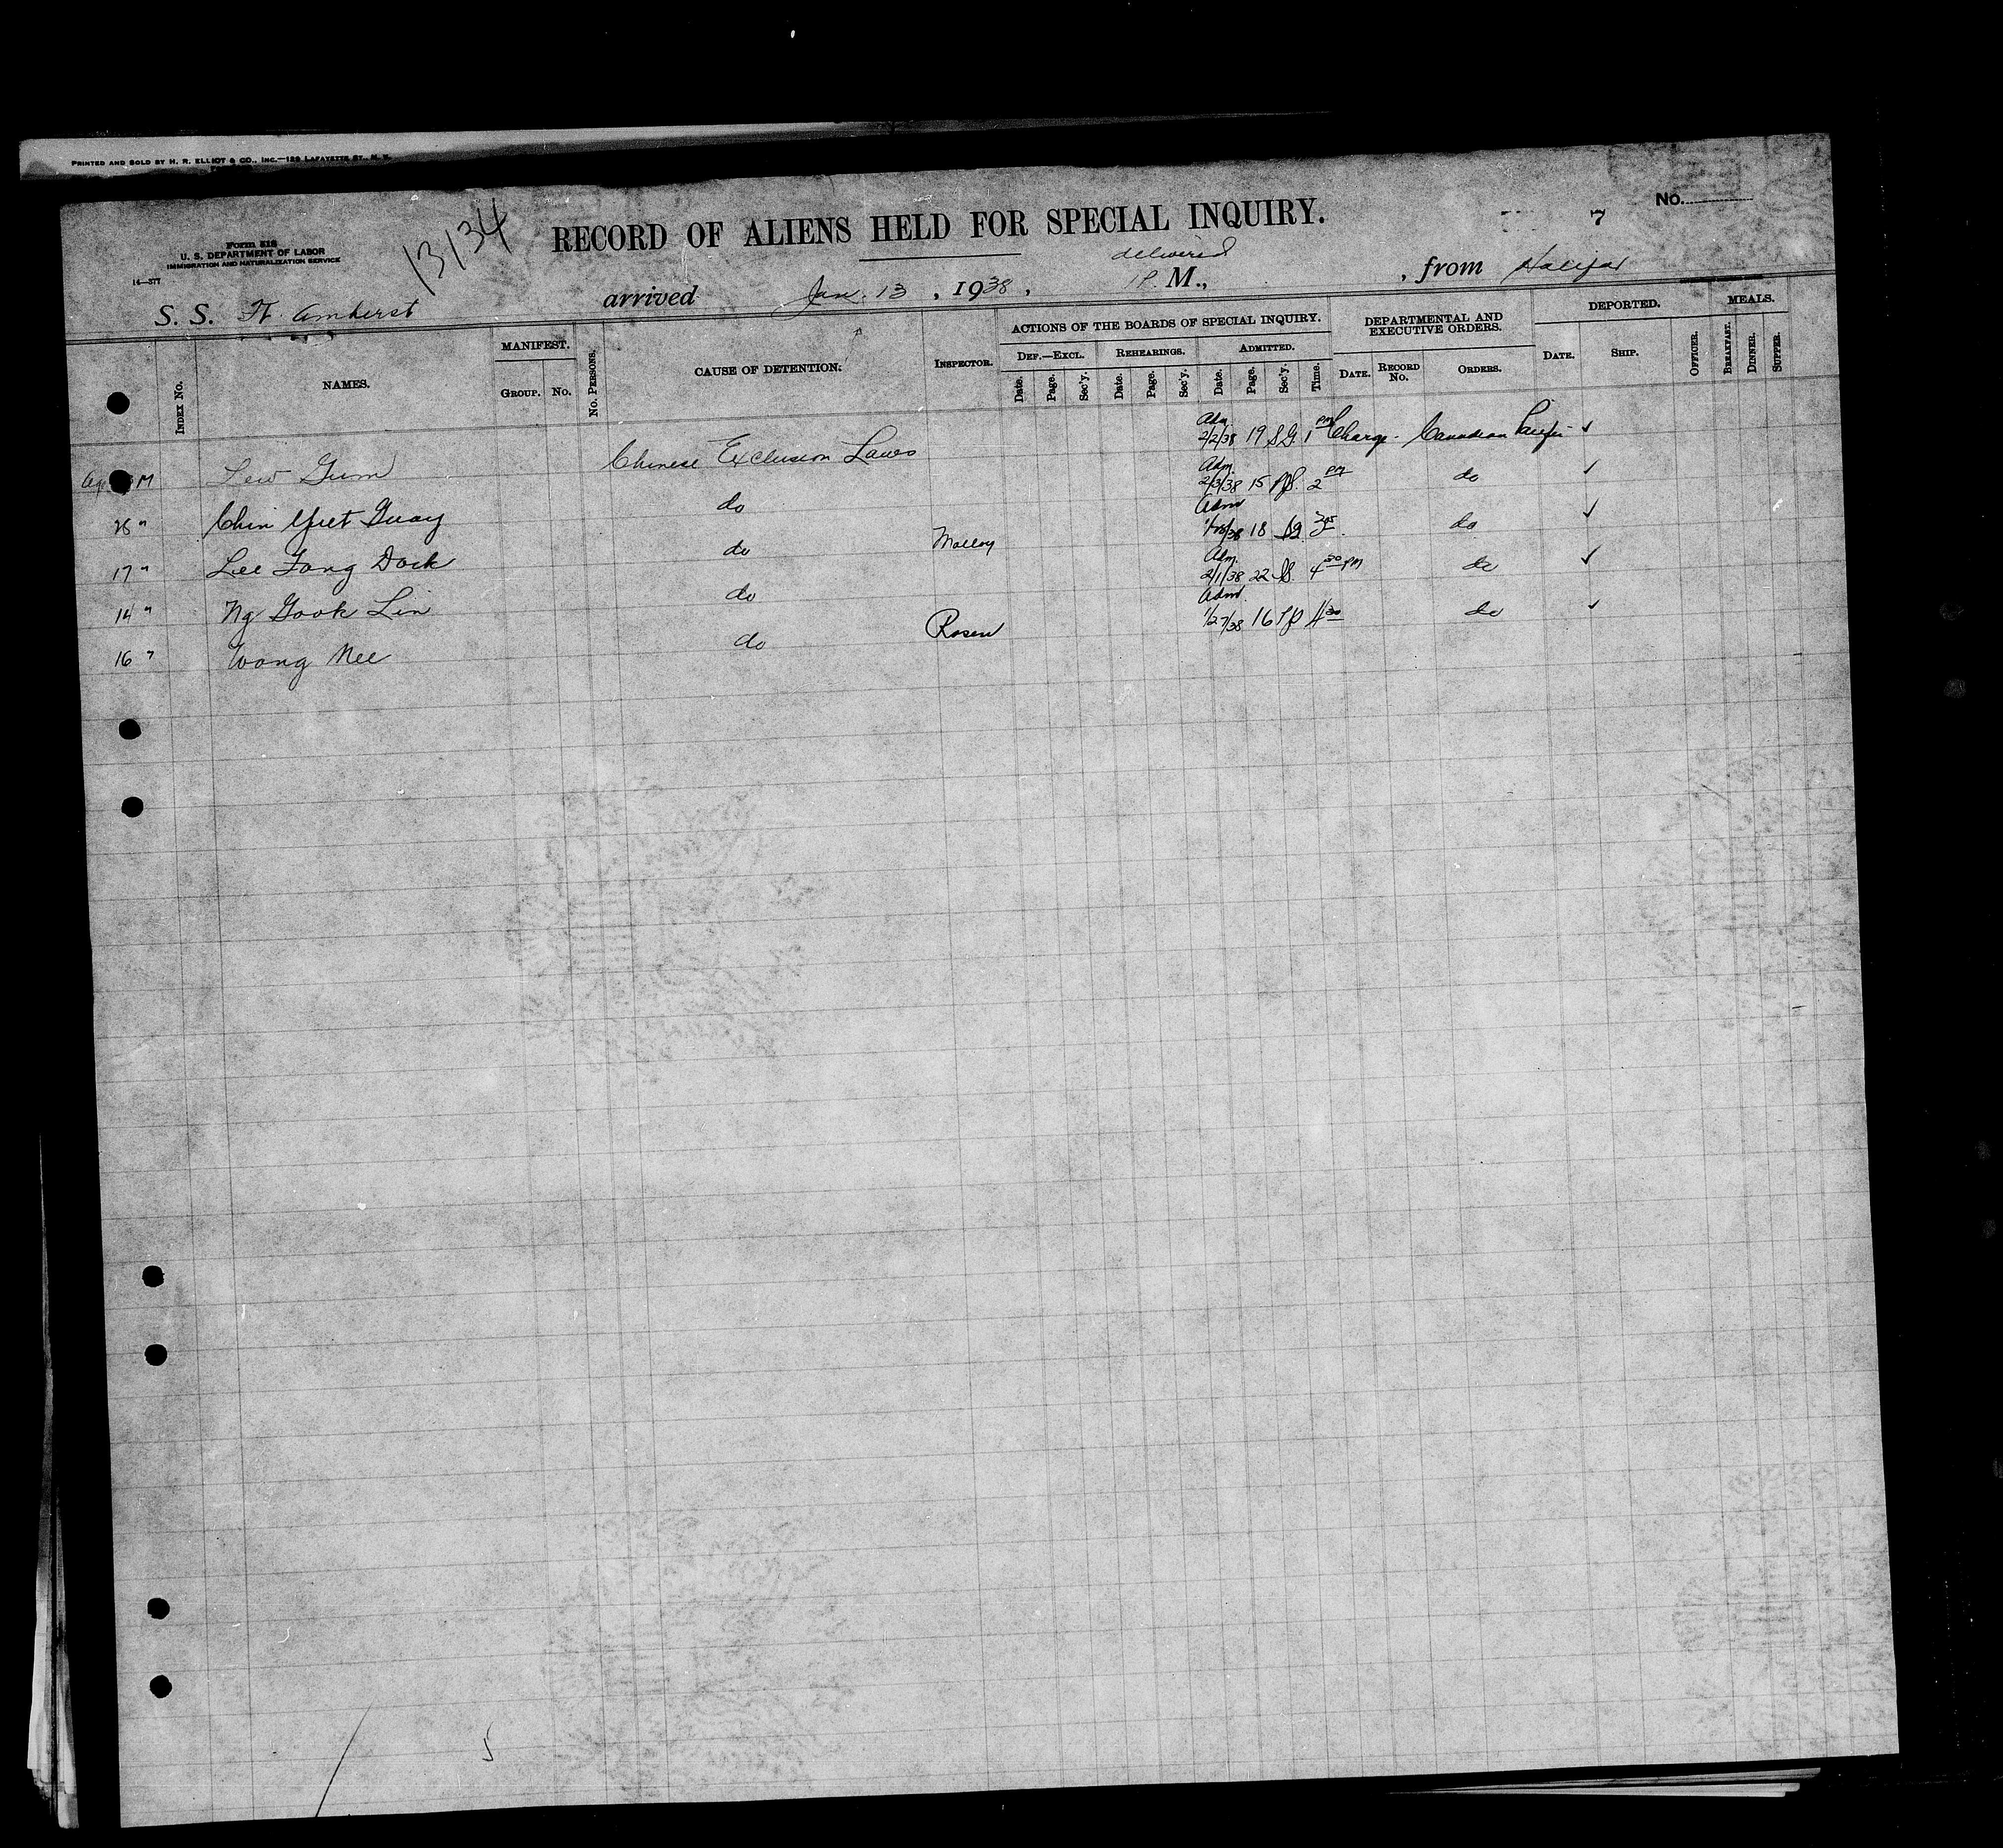 PRINTED AND SOLD BY H. R. ELLIOT & CO., INC.—129 LAFAYETTE ST., N. Y.
No.
7
13134
RECORD OF ALIENS HELD FOR SPECIAL INQUIRY.
Form 518
U. S. DEPARTMENT OF LABOR
IMMIGRATION AND NATURALIZATION SERVICE
14—377
delivered
S. S. Ft. Amherst arrived Jan. 13, 1938, 1 P. M., , from Halifax
INDEX No. NAMES. MANIFEST. GROUP. No. No. PERSONS. CAUSE OF DETENTION. INSPECTOR. ACTIONS OF THE BOARDS OF SPECIAL INQUIRY. DEF.—EXCL. Date. Page. Sec'y. REHEARINGS. Date. Page. Sec'y. ADMITTED. Date. Page. Sec'y. Time. DEPARTMENTAL AND EXECUTIVE ORDERS. DATE. RECORD No. ORDERS. DEPORTED. DATE. SHIP. OFFICER. MEALS. BREAKFAST. DINNER. SUPPER.
M Lew Gum Chinese Exclusion Laws Adm. 2/2/38 19 S.G. 1 PM Charge - Canadian Pacific ✓
28 " Chin Yuet Guay do Adm. 2/3/38 15 2 PM do ✓
17 " Lee Fong Dock do Malloy Adm 18 do ✓
14 " Ng Gook Lin do Adm. 2/1/38 22 4 30 PM do ✓
16 " Wong Nee do Rosen Adm. 1/27/38 16 4 30 do ✓
5